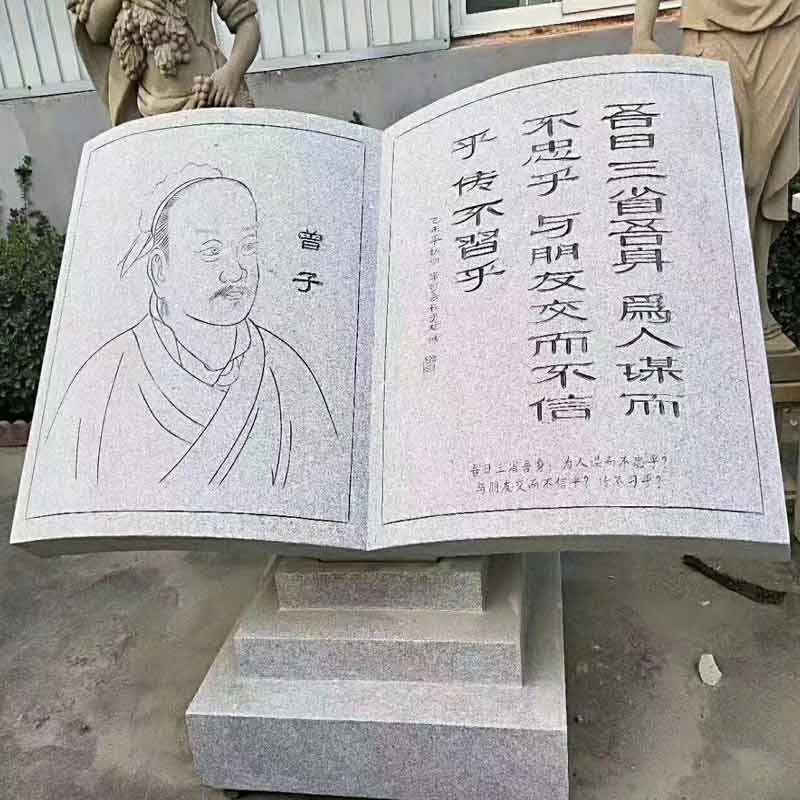 曾子
吾日三省吾身 爲人谋而
不忠乎 与朋友交而不信
乎 传不習乎
乙未年秋
吾日三省吾身：为人谋而不忠乎？
与朋友交而不信乎？传不习乎？